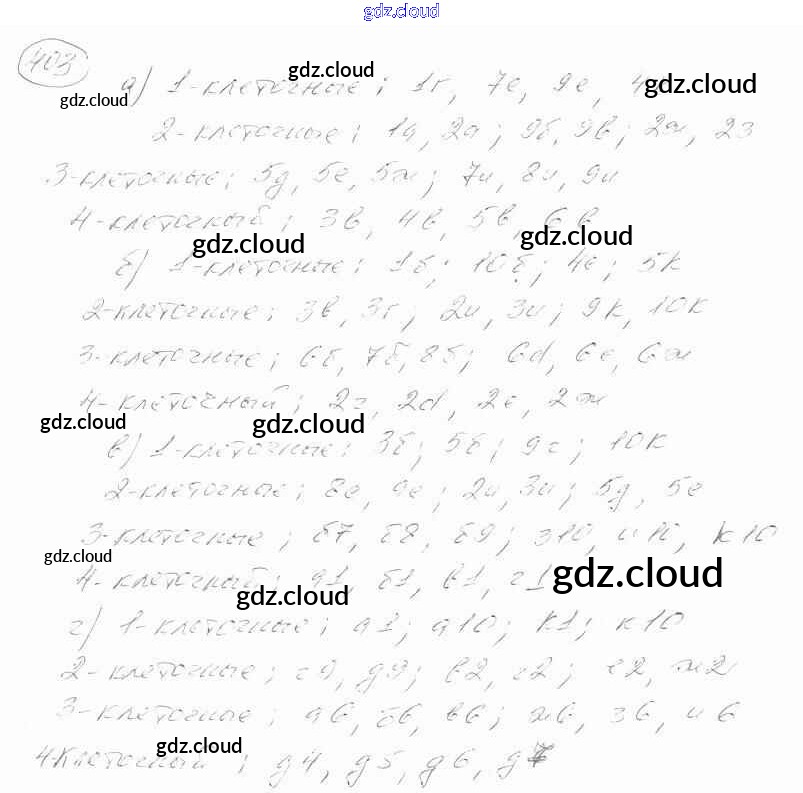 gdz.cloud
403
а) 1-клеточные; 1г, 7е, 9е, gdz.cloud
gdz.cloud gdz.cloud
2-клеточные; 1а, 2а; 9б, 9в; 2ж, 2з
3-клеточные; 5д, 5е, 5ж; 7и, 8и, 9и
4-клеточный; 3в, 4в, 5в, 6в
gdz.cloud gdz.cloud
б) 1-клеточные: 1б; 10б; 4е; 5к
2-клеточные: 3в, 3г; 2и, 3и; 9к, 10к
3-клеточные; 6б, 7б, 8б; 6d, 6е, 6ж
4-клеточный; 2г, 2d, 2е, 2ж
gdz.cloud gdz.cloud
в) 1-клеточные: 3б; 5б; 9г; 10к
2-клеточные; 8е, 9е; 2и, 3и; 5д, 5е
3-клеточные; б7, б8, б9; з10, и10, к10
gdz.cloud
4-клеточный; а1, б1, в1, г1 gdz.cloud
gdz.cloud
г) 1-клеточные; а1; а10; к1; к10
2-клеточные; г9, д9; в2, г2; е2, ж2
3-клеточные; а6, б6, в6; ж6, з6, и6
4-клеточный; д4, д5, д6, д7
gdz.cloud